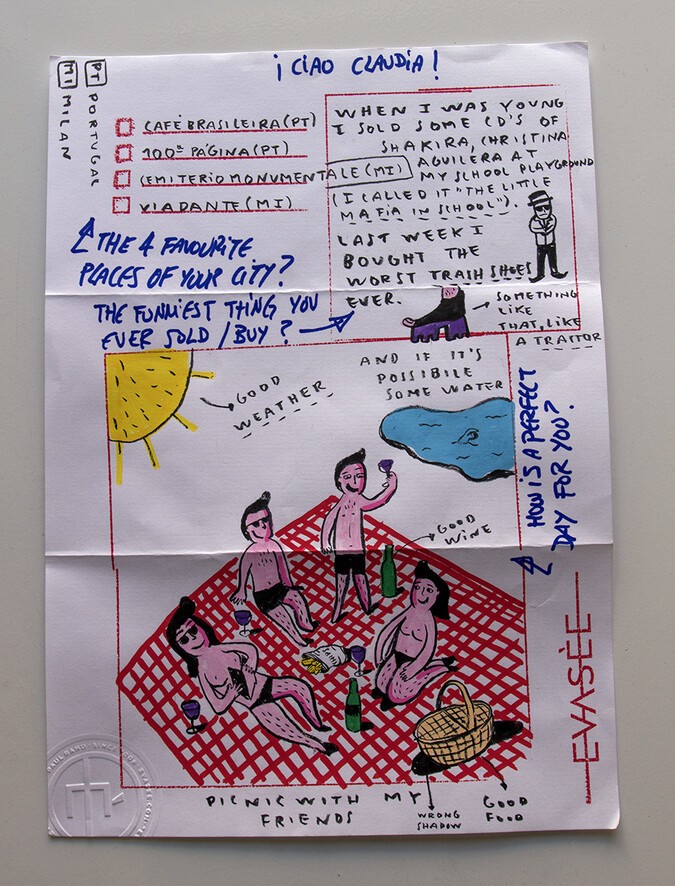 ¡ CIAO CLAUDIA !
PT PORTUGAL
MI MILAN
CAFÈ BRASILEIRA (PT)
100ª PÁGINA (PT)
CEMITERIO MONUMENTALE (MI)
VIA DANTE (MI)
THE 4 FAVOURITE
PLACES OF YOUR CITY?
WHEN I WAS YOUNG
I SOLD SOME CD'S OF
SHAKIRA, CHRISTINA
AGUILERA AT
MY SCHOOL PLAYGROUND
(I CALLED IT "THE LITTLE
MAFIA IN SCHOOL").
LAST WEEK I
BOUGHT THE
WORST TRASH SHOES
EVER.
SOMETHING
LIKE
THAT, LIKE
A TRACTOR
THE FUNNIEST THING YOU
EVER SOLD / BUY?
GOOD
WEATHER
AND IF IT'S
POSSIBILE
SOME WATER
HOW IS A PERFECT
DAY FOR YOU?
GOOD
WINE
EVASÈE
PICNIC WITH MY
FRIENDS
WRONG
SHADOW
GOOD
FOOD